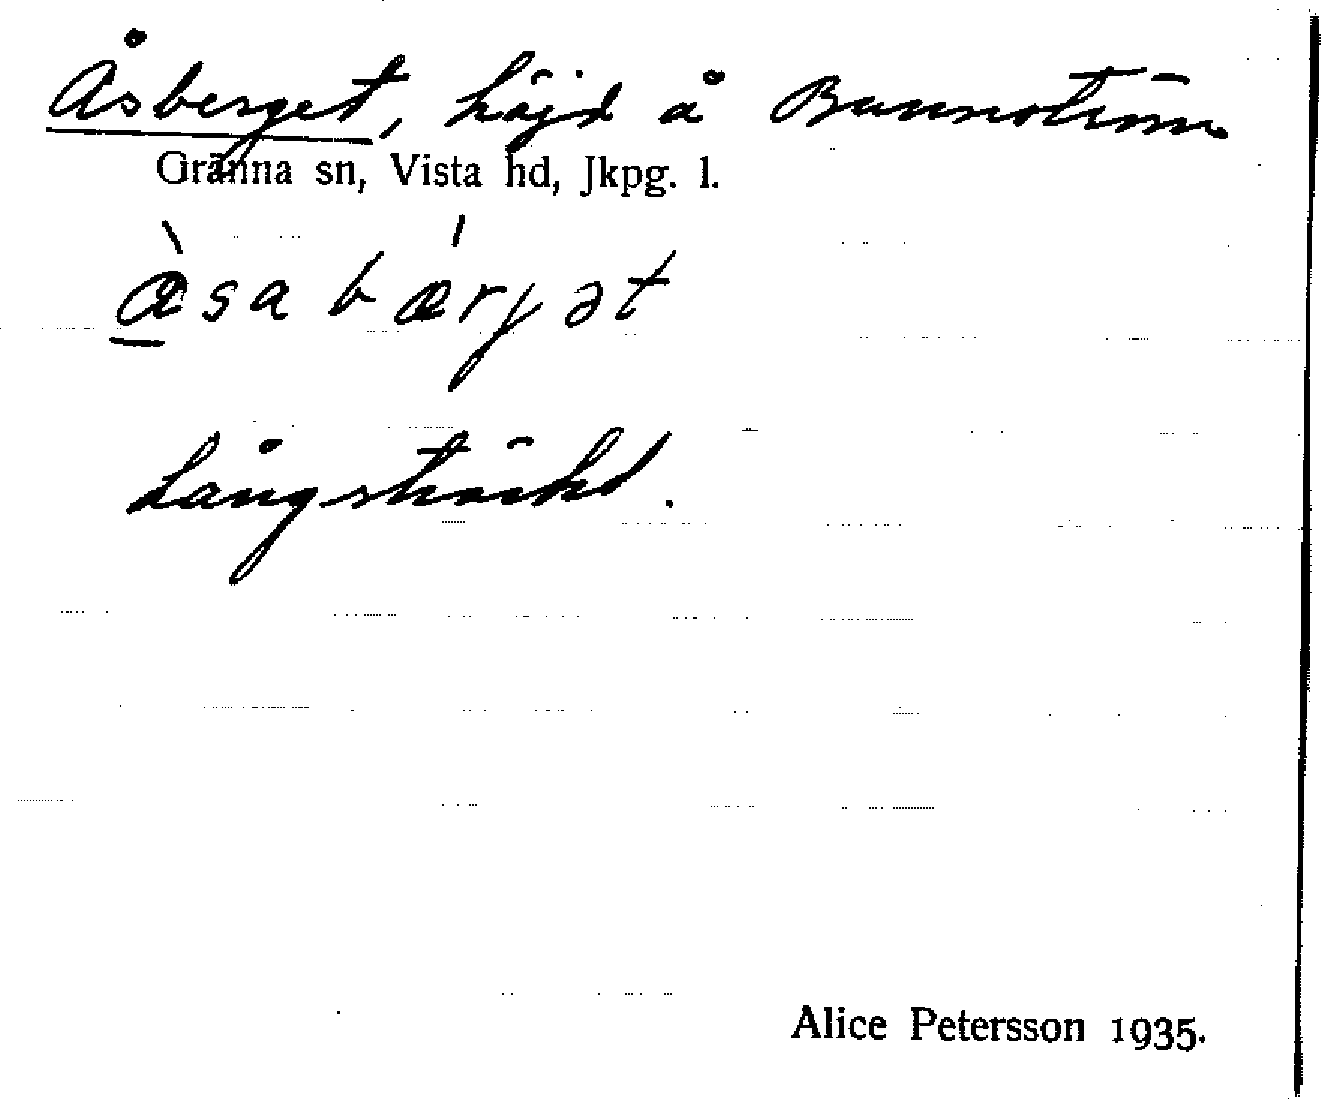 Åsberget, höjd å Bunnström
Gränna sn, Vista hd, Jkpg. l.
åsa bærjət
Långsträckt.
Alice Petersson 1935.